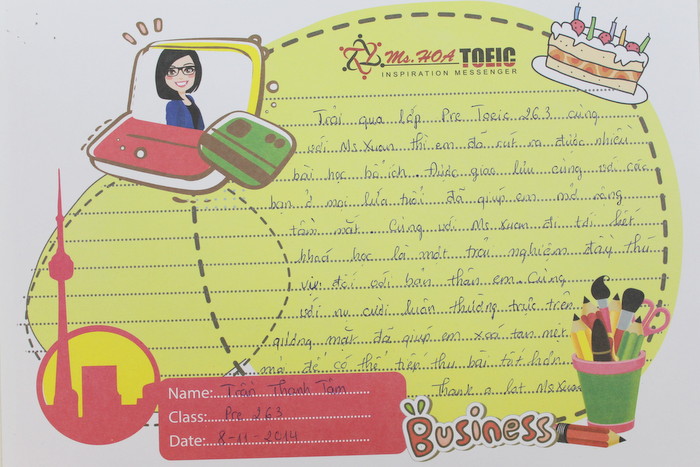 Ms.HOA TOEIC
INSPIRATION MESSENGER
Trải qua lớp Pre Toeic 263 cùng
với Ms Xuan thì em đã rút ra được nhiều
bài học bổ ích. Được giao lưu cùng với các
bạn ở mọi lứa tuổi đã giúp em mở rộng
tầm mắt. Cùng với Ms Xuan đi tới hết
khoá học là một trải nghiệm đầy thú
vị đối với bản thân em. Cùng
với nụ cười luôn thường trực trên
gương mặt đã giúp em xoá tan mệt
mỏi để có thể tiếp thu bài tốt hơn.
Thank a lot Ms Xuan
Name: Trần Thanh Tâm
Class: Pre 263
Date: 8-11-2014
Business